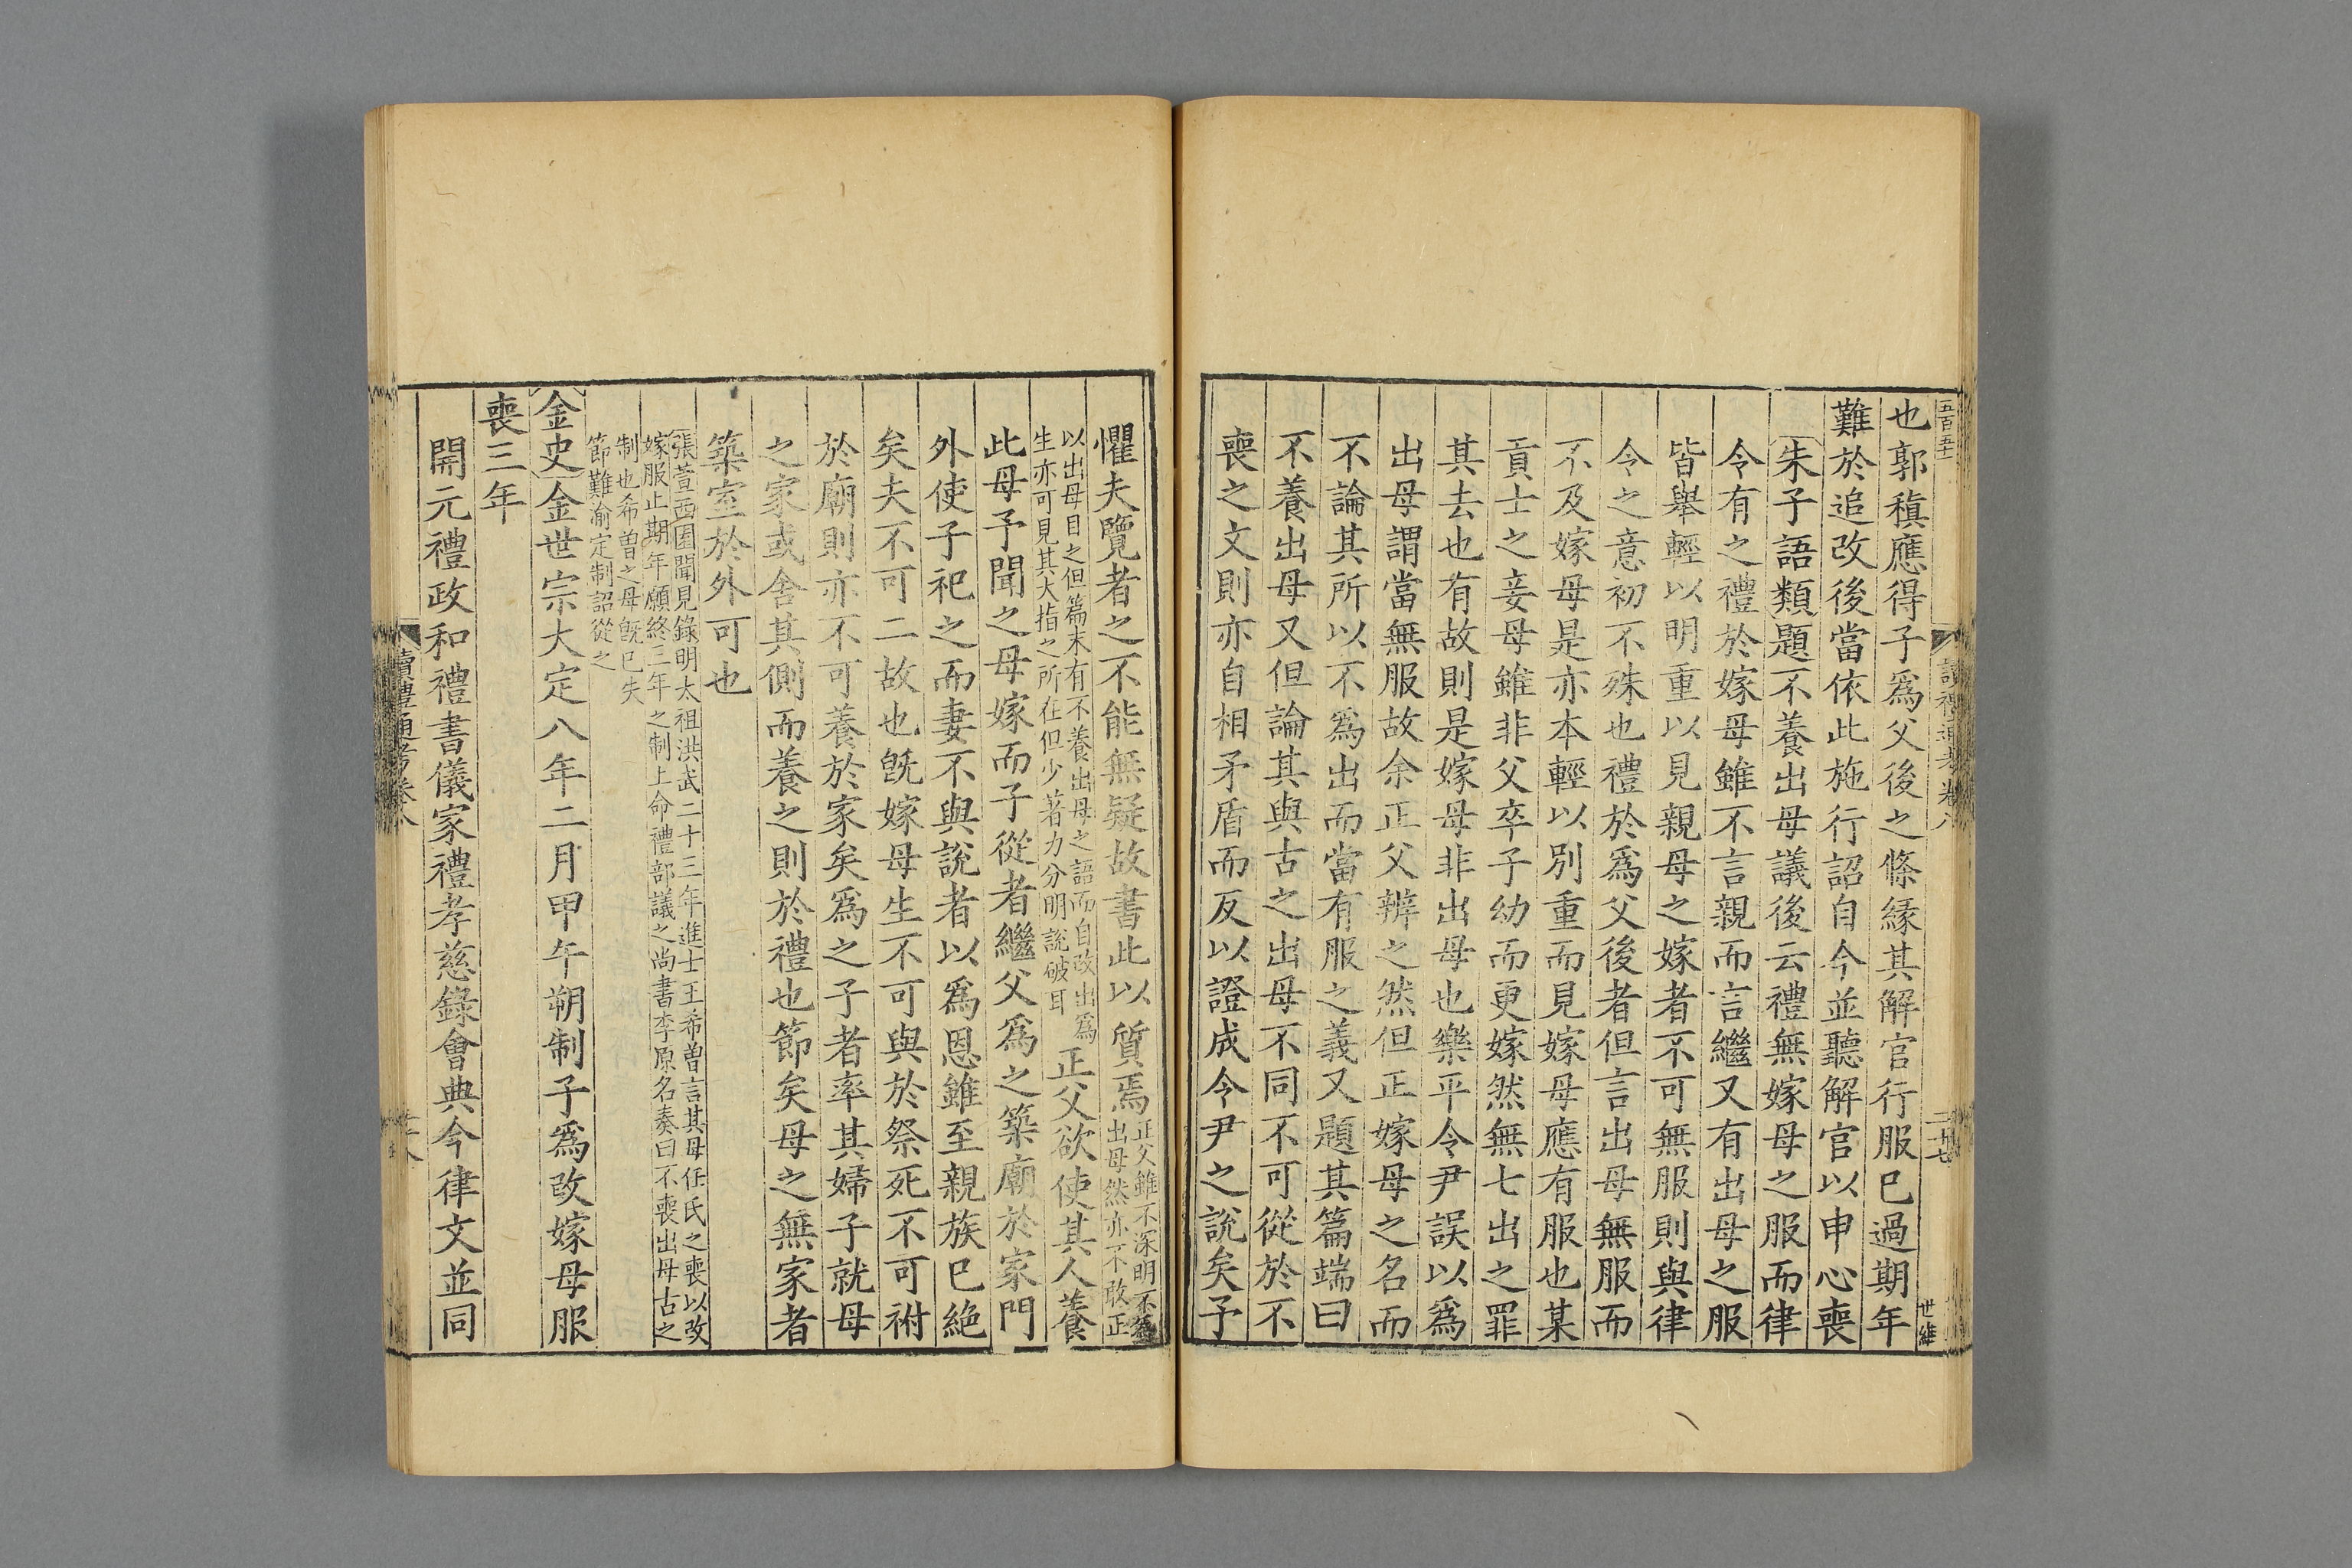 五百五十
讀禮通考卷八
二十七
世維
也郭稹應得子爲父後之條緣其解官行服已過期年
難於追改後當依此施行詔自今並聽解官以申心喪
朱子語類題不養出母議後云禮無嫁母之服而律
令有之禮於嫁母雖不言親而言繼又有出母之服
皆舉輕以明重以見親母之嫁者不可無服則與律
令之意初不殊也禮於爲父後者但言出母無服而
不及嫁母是亦本輕以別重而見嫁母應有服也某
貢士之妾母雖非父卒子幼而更嫁然無七出之罪
其去也有故則是嫁母非出母也樂平令尹誤以爲
出母謂當無服故余正父辨之然但正嫁母之名而
不論其所以不爲出而當有服之義又題其篇端曰
不養出母又但論其與古之出母不同不可從於不
喪之文則亦自相矛盾而反以證成令尹之說矣予
懼夫覽者之不能無疑故書此以質焉正父雖不深明不爲
出母然亦不敢正
以出母目之但篇末有不養出母之語而自改出爲
生亦可見其大指之所在但少著力分明說破耳正父欲使其人養
此母予聞之母嫁而子從者繼父爲之築廟於家門
外使子祀之而妻不與說者以爲恩雖至親族已絕
矣夫不可二故也旣嫁母生不可與於祭死不可祔
於廟則亦不可養於家矣爲之子者率其婦子就母
之家或舍其側而養之則於禮也節矣母之無家者
築室於外可也
張萱西園聞見錄明太祖洪武二十三年進士王希曾言其母任氏之喪以改
嫁服止期年願終三年之制上命禮部議之尚書李原名奏曰不喪出母古之
制也希曾之母旣已失
節難渝定制詔從之
金史金世宗大定八年二月甲午朔制子爲改嫁母服
喪三年
開元禮政和禮書儀家禮孝慈錄會典今律文並同
讀禮通考卷八